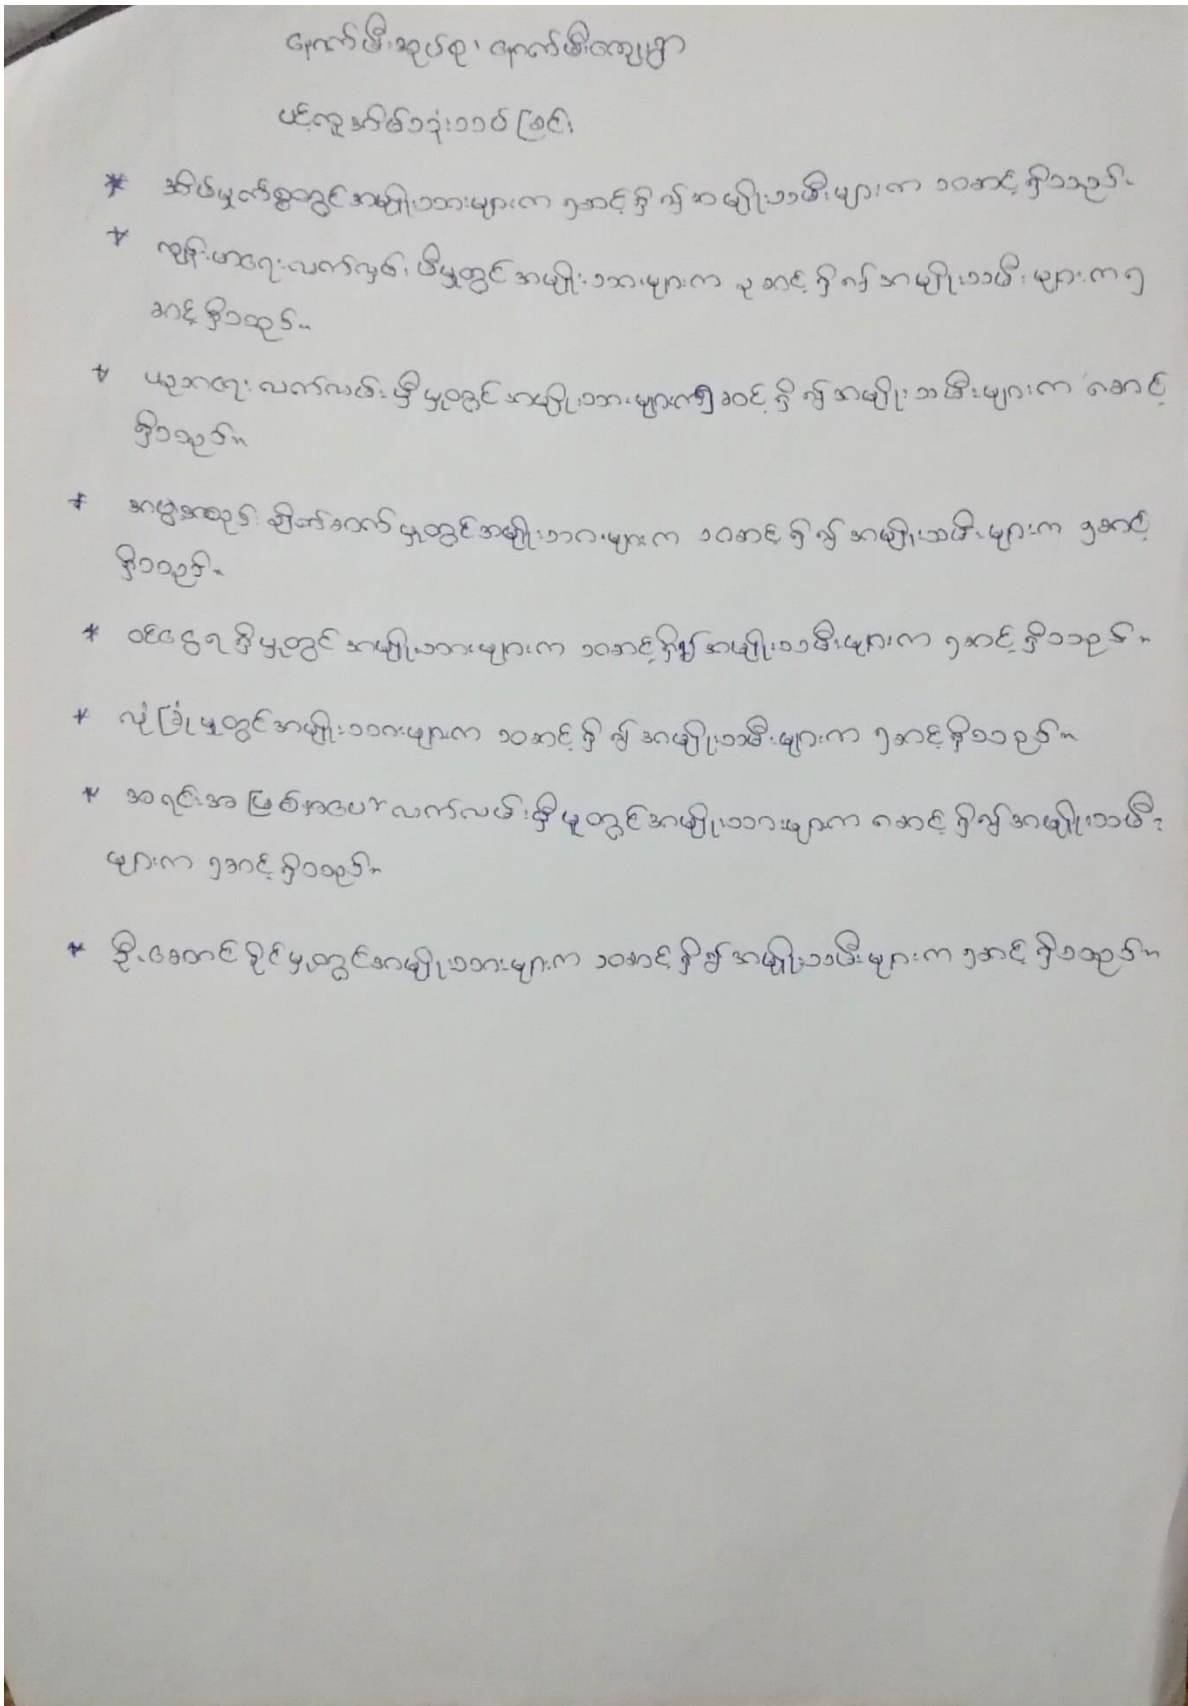 နောက်မီးအုပ်စု၊ နောက်မီးကျေးရွာ
ပင့်ကူအိမ်သုံးသပ်ခြင်း
* အိမ်မှုကိစ္စတွင်အမျိုးသားများက ၅ဆင့်ရှိ၍အမျိုးသမီးများက ၁၀ဆင့်ရှိသည်။
* ကျန်းမာရေးလက်လှမ်းမီမှုတွင်အမျိုးသားများက ၃ဆင့်ရှိ၍အမျိုးသမီးများက၅
ဆင့်ရှိသည်။
* ပညာရေးလက်လမ်းမှီမှုတွင်အမျိုးသားများက၅ဆင့်ရှိ၍အမျိုးသမီးများက ၈ဆင့်
ရှိသည်။
* အဖွဲ့အစည်းချိတ်ဆက်မှုတွင်အမျိုးသားများက ၁၀ဆင့်ရှိ၍အမျိုးသမီးများက ၅ဆင့်
ရှိသည်။
* ဝင်ငွေရရှိမှုတွင်အမျိုးသားများက ၁၀ဆင့်ရှိ၍အမျိုးသမီးများက ၅ဆင့်ရှိသည်။
* လုံခြုံမှုတွင်အမျိုးသားများက ၁၀ဆင့်ရှိ၍အမျိုးသမီးများက ၅ဆင့်ရှိသည်။
* အရင်းအမြစ်အပေါ်လက်လမ်းမှီမှုတွင်အမျိုးသားများက ၈ဆင့်ရှိ၍အမျိုးသမီး
များက ၅ဆင့်ရှိသည်။
* ဦးဆောင်နိုင်မှုတွင်အမျိုးသားများက ၁၀ဆင့်ရှိ၍အမျိုးသမီးများက ၅ဆင့်ရှိသည်။